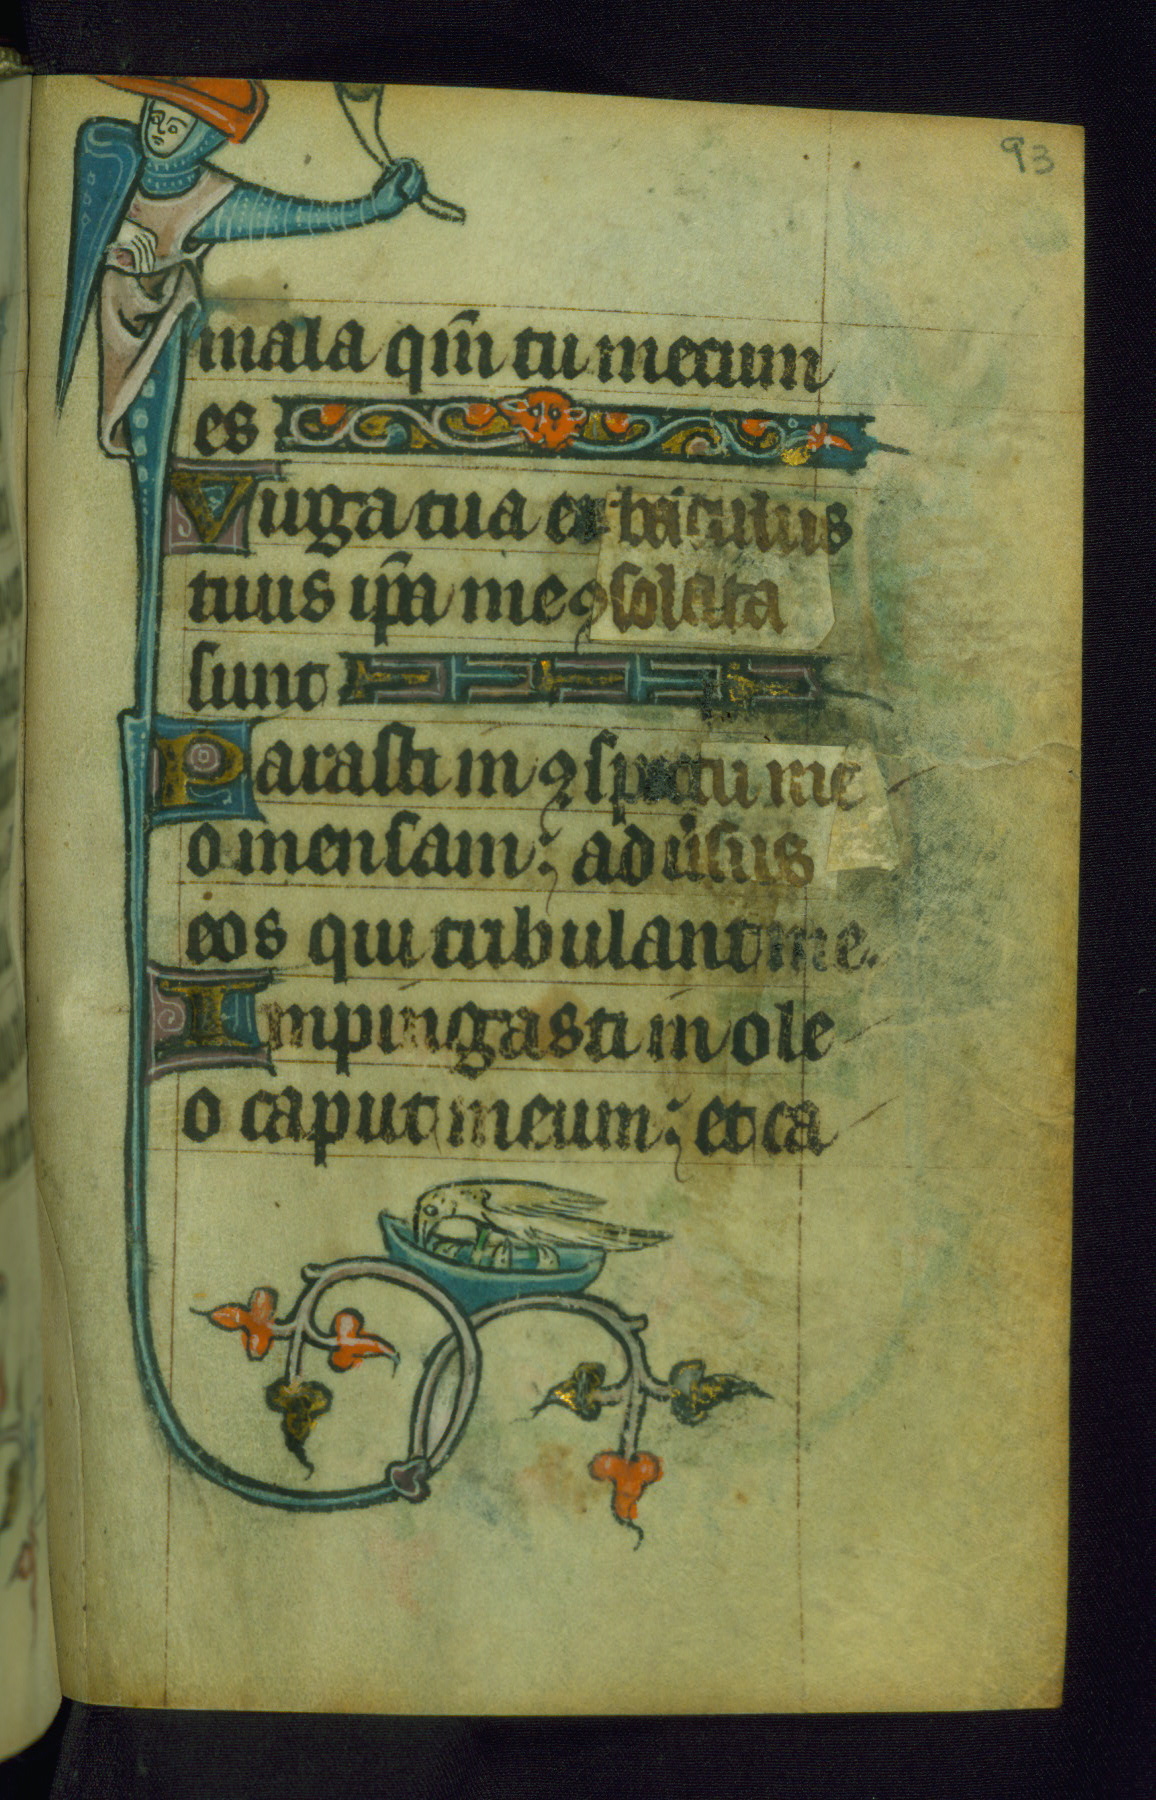 93
mala qm̄ tu mecum
es
Uirga tua et baculus
tuus ip̄a me ꝯsolata
sunt
Parasti in ꝯspectu me
o mensam: adũsus
eos qui tribulant me.
Impingasti in ole
o caput meum: et ca